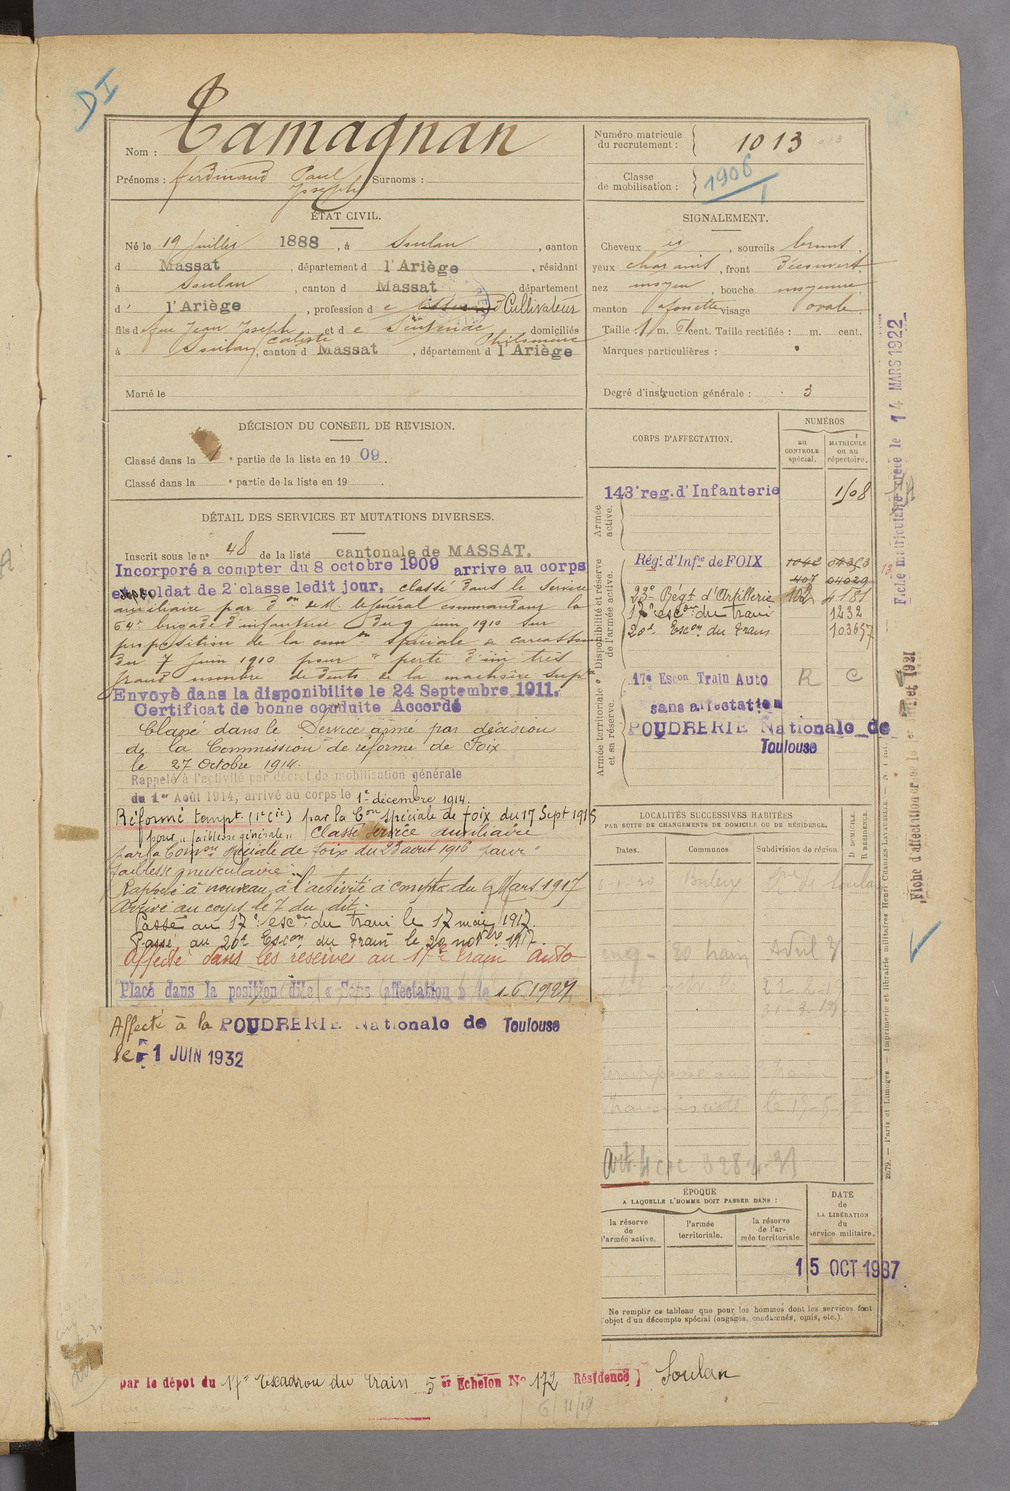 DI
Nom : Camagnan
Prénoms : Ferdinand Paul Joseph Surnoms :
Numéro matricule du recrutement : 1013
Classe de mobilisation : 1906
ÉTAT CIVIL.
Né le 19 Juillet 1888, à Soulan, canton
d Massat, département d l'Ariège, résidant
à Soulan, canton d Massat département
d' l'Ariège, profession d e Cultivateur
fils d e feu Jean Joseph Calixte et d e Sentenac Philomène domiciliés
à Soulan, canton d Massat, département d l'Ariège
Marié le
SIGNALEMENT.
Cheveux , sourcils bruns
yeux , front Découvert
nez moyen, bouche moyenne
menton à fossette visage ovale
Taille : 1 m. 61 cent. Taille rectifiée : m. cent.
Marques particulières :
Degré d'instruction générale : 3
DÉCISION DU CONSEIL DE REVISION.
Classé dans la 1 e partie de la liste en 1909.
Classé dans la e partie de la liste en 19
DÉTAIL DES SERVICES ET MUTATIONS DIVERSES.
Inscrit sous le n° 48 de la liste cantonale de MASSAT.
Incorporé a compter du 8 octobre 1909 arrive au corps
et soldat de 2e classe ledit jour, classé dans le service
auxiliaire par don de M. le Général commandant la
64e brigade d'infanterie du 9 juin 1910 sur
proposition de la comon spéciale de Carcassonne
du 7 juin 1910 pour " perte d'un très
grand nombre de dents à la machoire supre
Envoyé dans la disponibilite le 24 Septembre 1911.
Certificat de bonne conduite Accordé
Classé dans le Service armé par décision
de la Commission de réforme de Foix
le 27 Octobre 1914.
Rappelé à l'activité par décret de mobilisation générale
du 1er Août 1914, arrivé au corps le 1er décembre 1914.
Réformé tempt. (1e Cie) par la Con spéciale de Foix du 17 Sept 1915
pour „faiblesse générale„ Classé service auxiliaire
par la Comon spéciale de Foix du 23 août 1916 pour "
faiblesse musculaire"
Rappelé à nouveau à l'activité à compter du 6 Mars 1917
Arrivé au corps le 7 du dit.
Passé au 17e escon du train le 17 mai 1917.
Passé au 20e Escon du Train le 20 novbre 1917.
Affecté dans les réserves au 17e Train auto
Placé dans la position dite « Sans affectation » le 1.6.1927
Affecté à la POUDRERIE Nationale de Toulouse
le 1 JUIN 1932
CORPS D'AFFECTATION.
NUMÉROS
au CONTROLE spécial.
MATRICULE ou au répertoire.
Armée active.
143e reg. d'Infanterie 1508
Disponibilité et réserve de l'armée active.
Régt d'Infie de FOIX
23e Régt d'Artillerie
17e escon du train 1232
20e Escon du Train 103657
Armée territoriale et sa réserve.
17e Escon Train Auto R C
sans affectation
POUDRERIE Nationale de
Toulouse
LOCALITÉS SUCCESSIVES HABITÉES
PAR SUITE DE CHANGEMENTS DE DOMICILE OU DE RÉSIDENCE.
Dates. Communes Subdivision de région. D DOMICILE. R RÉSIDENCE.
ÉPOQUE
A LAQUELLE L'HOMME DOIT PASSER DANS :
la réserve de l'armée active.
l'armée territoriale.
la réserve de l'armée territoriale.
DATE de LA LIBÉRATION du service militaire.
15 OCT 1937
Ne remplir ce tableau que pour les hommes dont les services font
l'objet d'un décompte spécial (engagés, condamnés, omis, etc.).
par le dépot du 17e Escadron du Train 5er Echelon N° 172 Résidence ] Soulan
Fiche matriculaire créée le 14 MARS 1922
2679. — Paris et Limoges. — Imprimerie et librairie militaires Henri CHARLES-LAVAUZELLE.